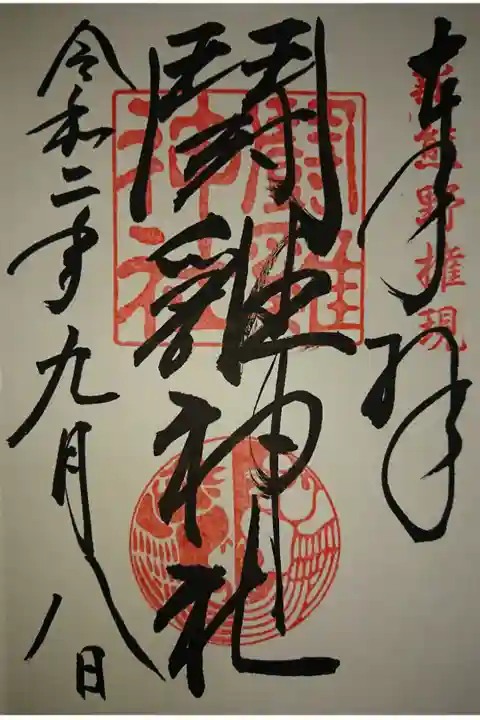 奉拝
新熊野権現
闘雞神社
闘雞神社
令和二年九月八日